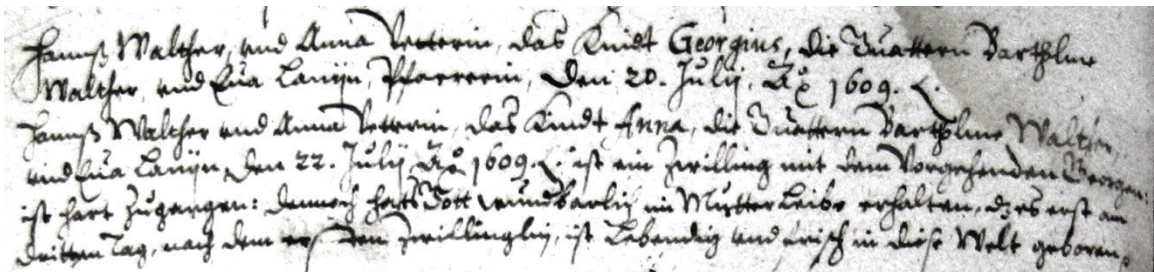 Hannß Walther, und Anna Vetterin, das Kindt Georgius, die Gvattern Bartholme
Walther, und Eva Laniin, Pfarrerin, den 20. Julij, Ao 1609.
Hannß Walther und Anna Vetterin, das Kindt Anna, die Gvattern Bartholme Walther,
und Eva Laniin den 22. Julij Ao 1609. ist ein Zwilling mit dem Vorgehenden Georgen:
ist hart zugangen: dennoch hats Gott wunderbarlich im Mutter Leibe erhalten, dz es erst am
dritten Tag, nach dem ersten Zwillinglin, ist lebendig und frisch in diese Welt geboren.